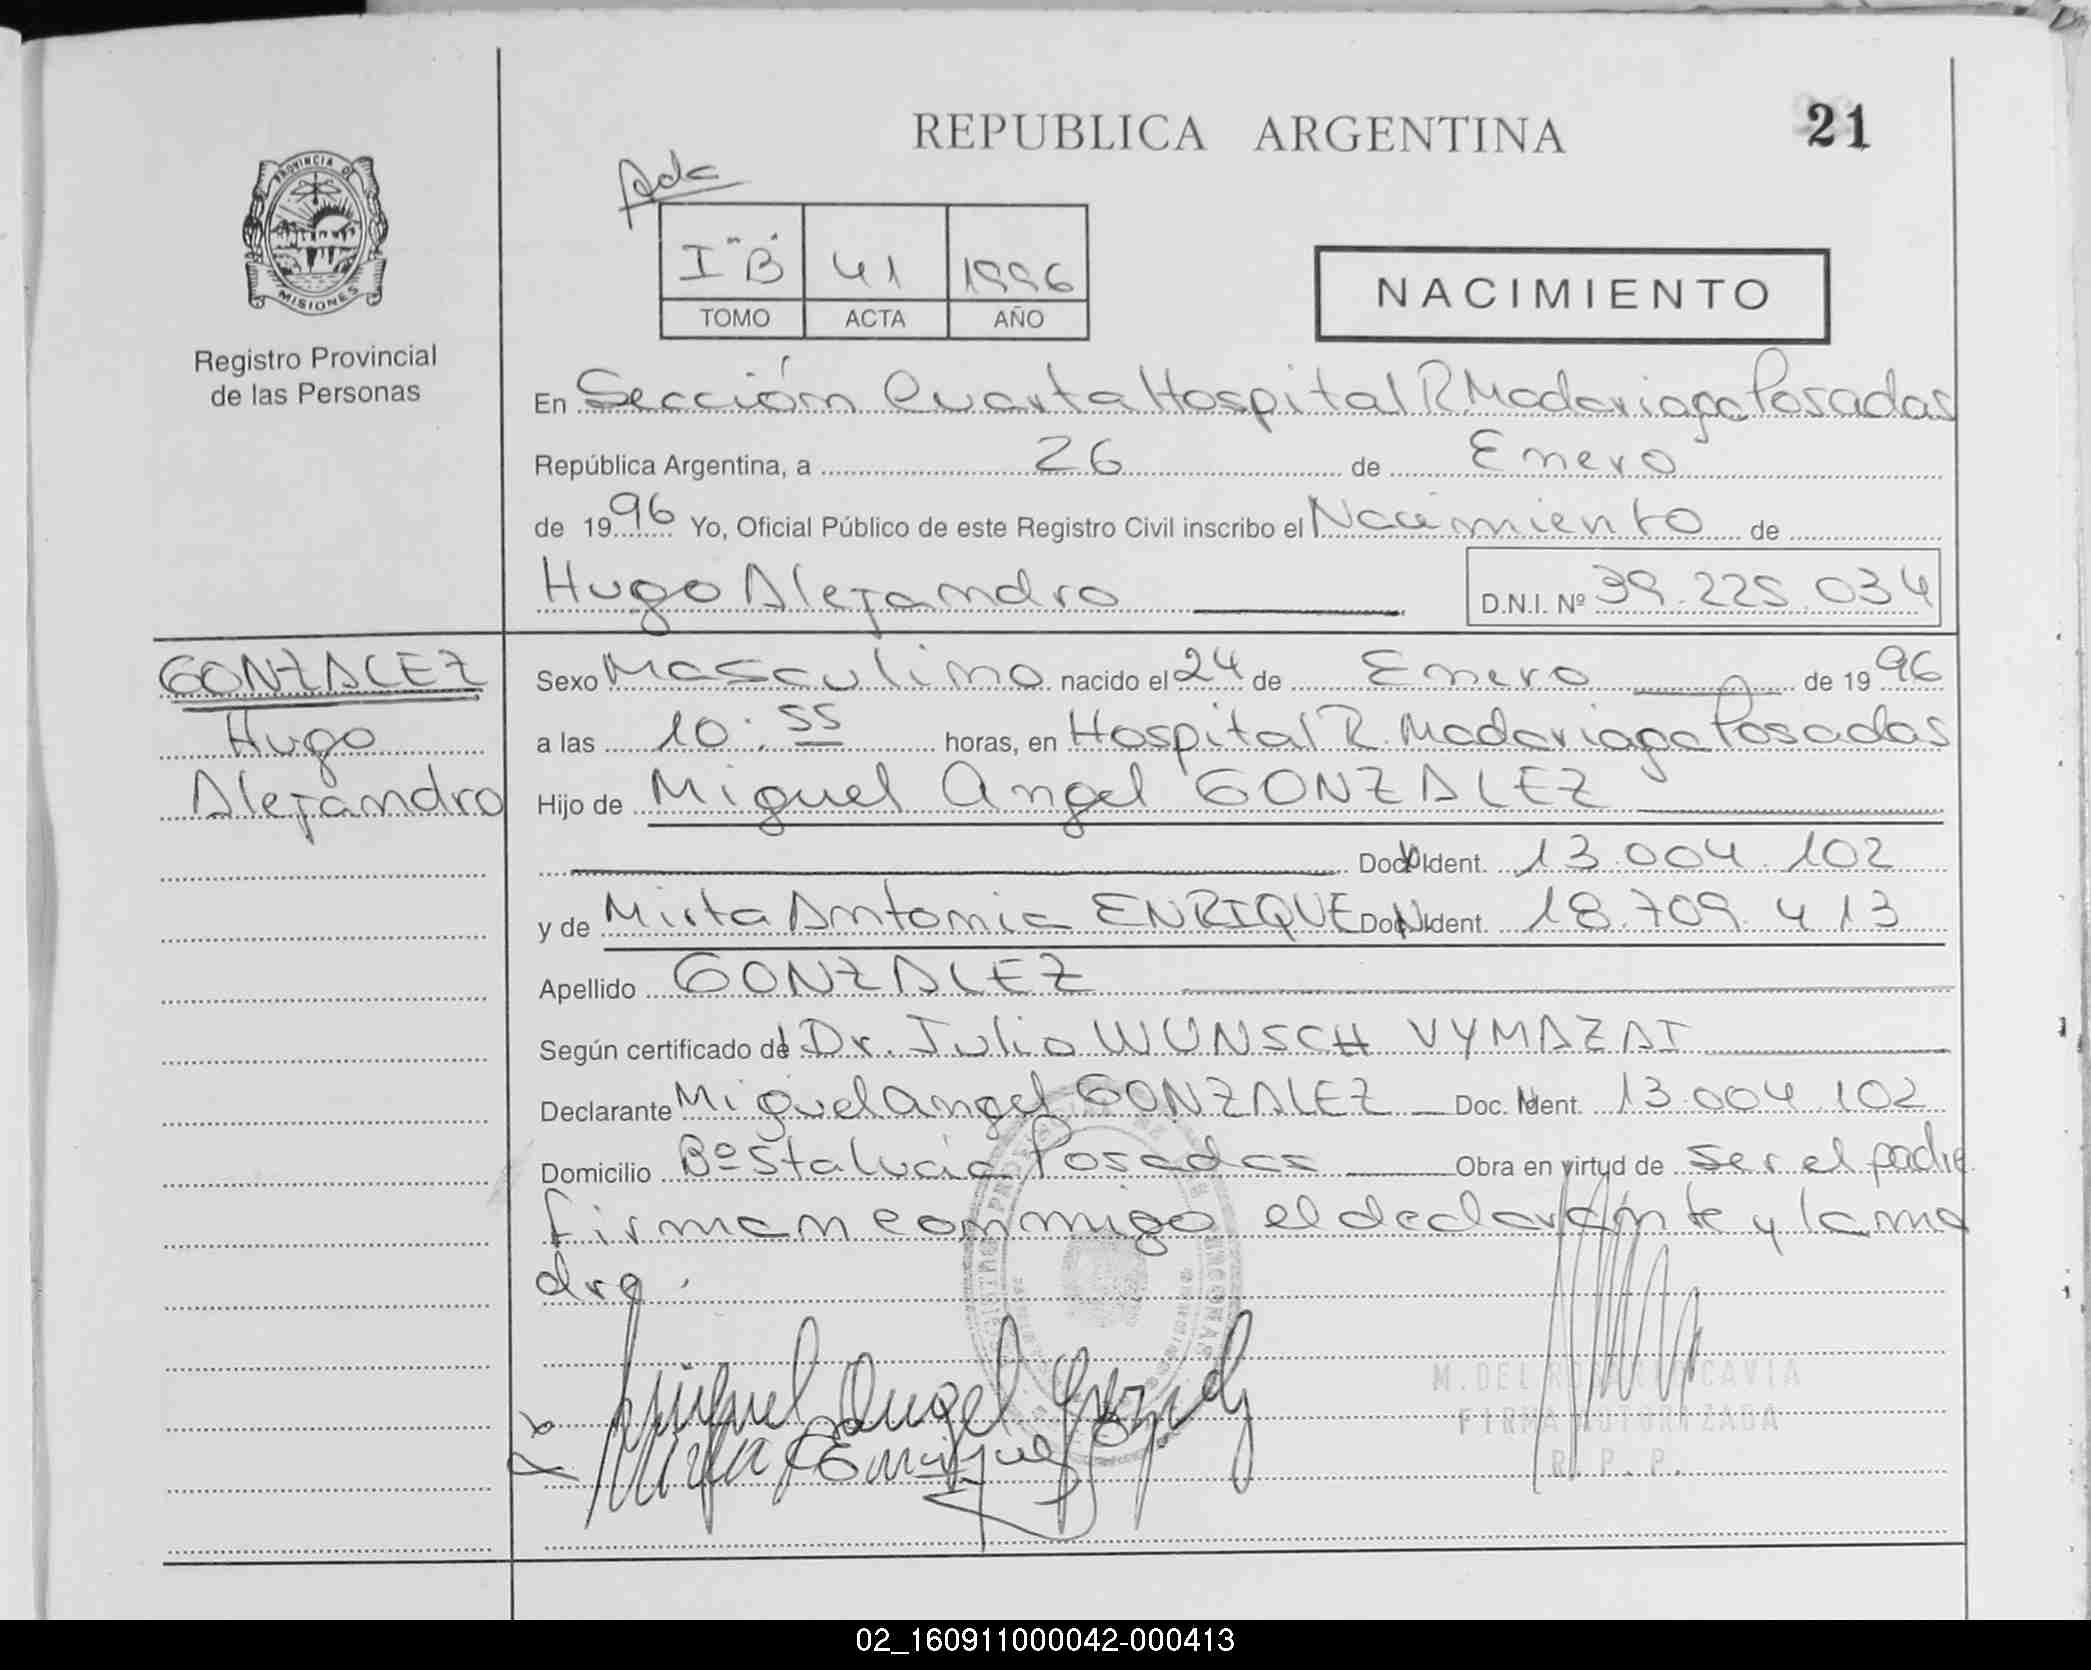 REPUBLICA ARGENTINA
21
PROVINCIA D
MISIONES
Registro Provincial
de las Personas
I "B" 41 1996
TOMO ACTA AÑO
NACIMIENTO
En Sección Cuarta Hospital R Madariaga Posadas
República Argentina, a 26 de Enero
de 1996 Yo, Oficial Público de este Registro Civil inscribo el Nacimiento de
Hugo Alejandro D.N.I. Nº 39.225.034
GONZALEZ
Hugo
Alejandro
Sexo Masculino nacido el 24 de Enero de 1996
a las 10:55 horas, en Hospital R. Madariaga Posadas
Hijo de Miguel Angel GONZALEZ
Doc. Ident. 13.004.102
y de Mirta Antonia ENRIQUE Doc. Ident. 18.709.413
Apellido GONZALEZ
Según certificado del Dr. Julio WUNSCH VYMAZAI
Declarante Miguel Angel GONZALEZ Doc. Ident. 13.004.102
Domicilio Bº Sta lucia Posadas Obra en virtud de ser el padre
firman conmigo el declarante y la ma
dre.
Miguel Angel
Mirta Enrique
FIRMA AUTORIZADA
R. P. P.
02_160911000042-000413